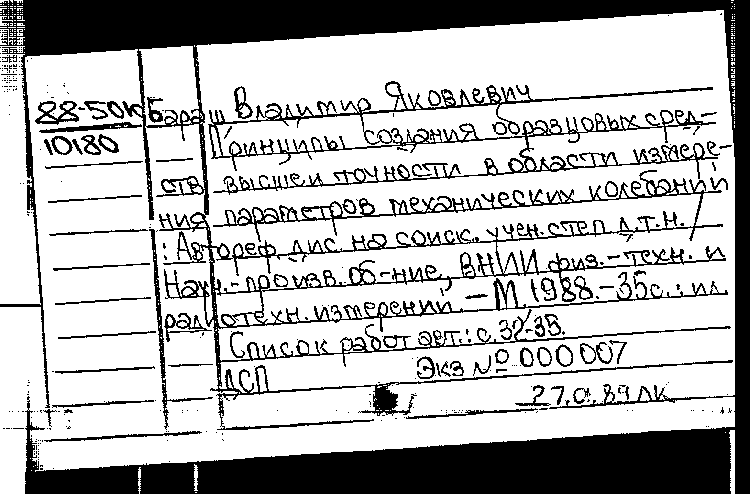 88-50к Бараш Владимир Яковлевич
10180 Принципы создания образцовых сред-
ств высшей точности в области измере-
ния параметров механических колебаний
: Автореф. дис. на соиск. учен. степ. д.т.н. /
Науч.-произв. об-ние, ВНИИ физ.-техн. и
радиотехн. измерений. - М. 1988. - 35с. : ил.
Список работ авт.: с. 32-35.
ДСП Экз № 000007